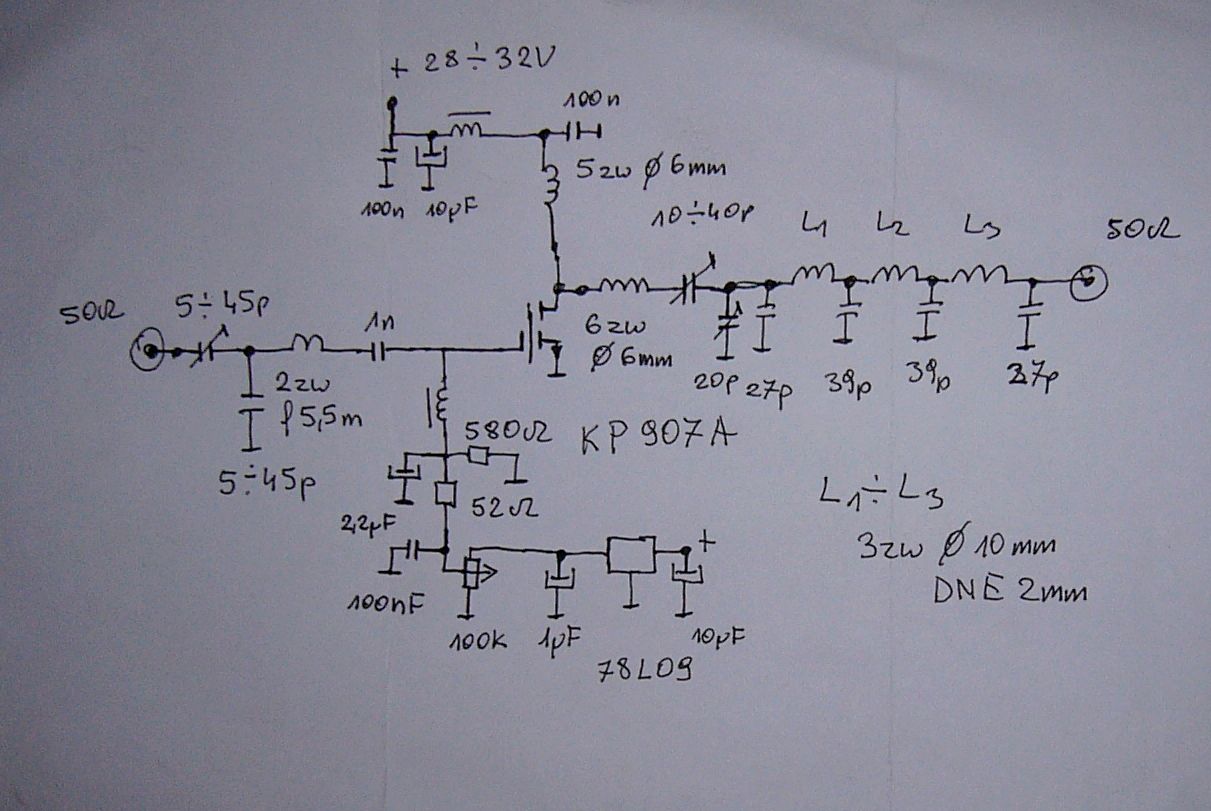 + 28÷32V
100n
5zw ø 6mm
100n 10µF
10÷40p
L1 L2 L3
50Ω
50Ω
5÷45p
1n
6zw
ø 6mm
2zw
5,5m
20p 27p 39p 39p 27p
580Ω
KP 907A
5÷45p
52Ω
L1÷L3
2,2µF
3zw ø 10mm
DNE 2mm
100nF
100K 1µF 10µF
78L09